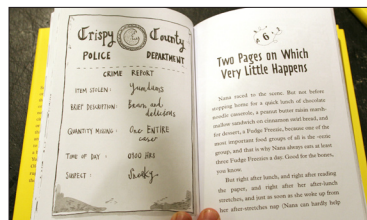 Crispy County
POLICE DEPARTMENT
CRIME REPORT
ITEM STOLEN:
BRIEF DESCRIPTION: Brown and
delicious
QUANTITY MISSING: One ENTIRE
case
TIME OF DAY: 0900 HRS
SUSPECT:
6
Two Pages on Which
Very Little Happens
Nana raced to the scene. But not before
stopping home for a quick lunch of chocolate
noodle casserole, a peanut butter raisin marsh-
mallow sandwich on cinnamon swirl bread, and
for dessert, a Fudge Freezie, because one of the
most important food groups of all is the -eezie
group, and that is why Nana always eats at least
three Fudge Freezies a day. Good for the bones,
you know.
But right after lunch, and right after reading
the paper, and right after her after-lunch
stretches, and just as soon as she woke up from
her after-stretches nap (Nana can hardly help